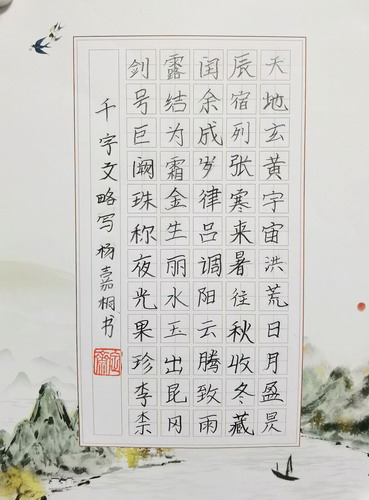 天地玄黄宇宙洪荒日月盈昃
辰宿列张寒来暑往秋收冬藏
闰余成岁律吕调阳云腾致雨
露结为霜金生丽水玉出昆冈
剑号巨阙珠称夜光果珍李柰
千字文略写杨嘉桐书